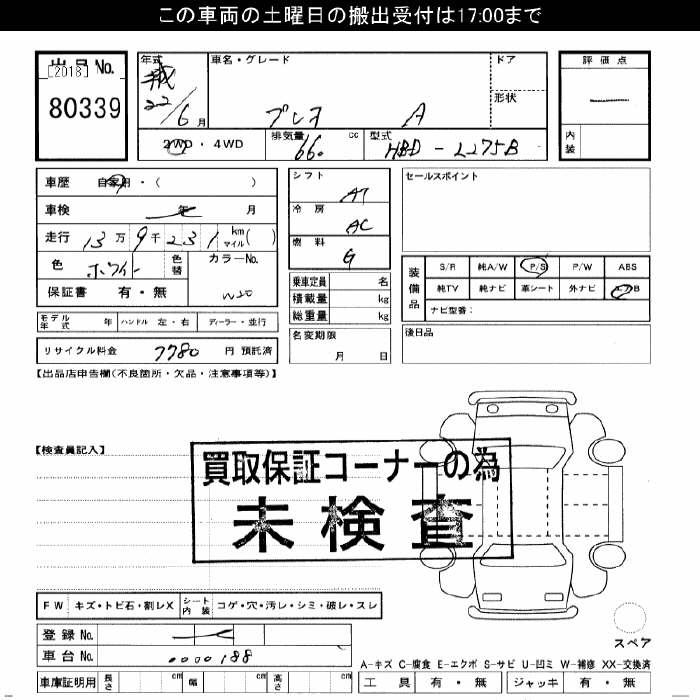 この車両の土曜日の搬出受付は17:00まで
出品 No.
[2018]
80339
年式
22/6 月
車名・グレード
プレオ A
ドア
形状
評価点
内装
2WD・4WD
排気量 660 cc
型式 HBD-L275B
車歴 自家用・( )
車検 年 月
走行 13万9千231 km マイル( )
色 ホワイト 色替
カラーNo. W20
保証書 有・無
シフト AT
冷房 AC
燃料 G
乗車定員 名
積載量 kg
総重量 kg
名変期限
月 日
セールスポイント
装備品
S/R 純A/W P/S P/W ABS
純TV 純ナビ 革シート 外ナビ エアB
ナビ型番:
後日品
モデル年式 年 ハンドル 左・右 ディーラー・並行
リサイクル料金 7780 円 預託済
【出品店申告欄(不良箇所・欠品・注意事項等)】
【検査員記入】
買取保証コーナーの為
未検査
FW キズ・トビ石・割レX シート内装 コゲ・穴・汚レ・シミ・破レ・スレ
登録No.
車台No. 0000188
車庫証明用 長さ cm 幅 cm 高さ cm
スペア
A-キズ C-腐食 E-エクボ S-サビ U-凹ミ W-補修 XX-交換済
工具 有・無 ジャッキ 有・無